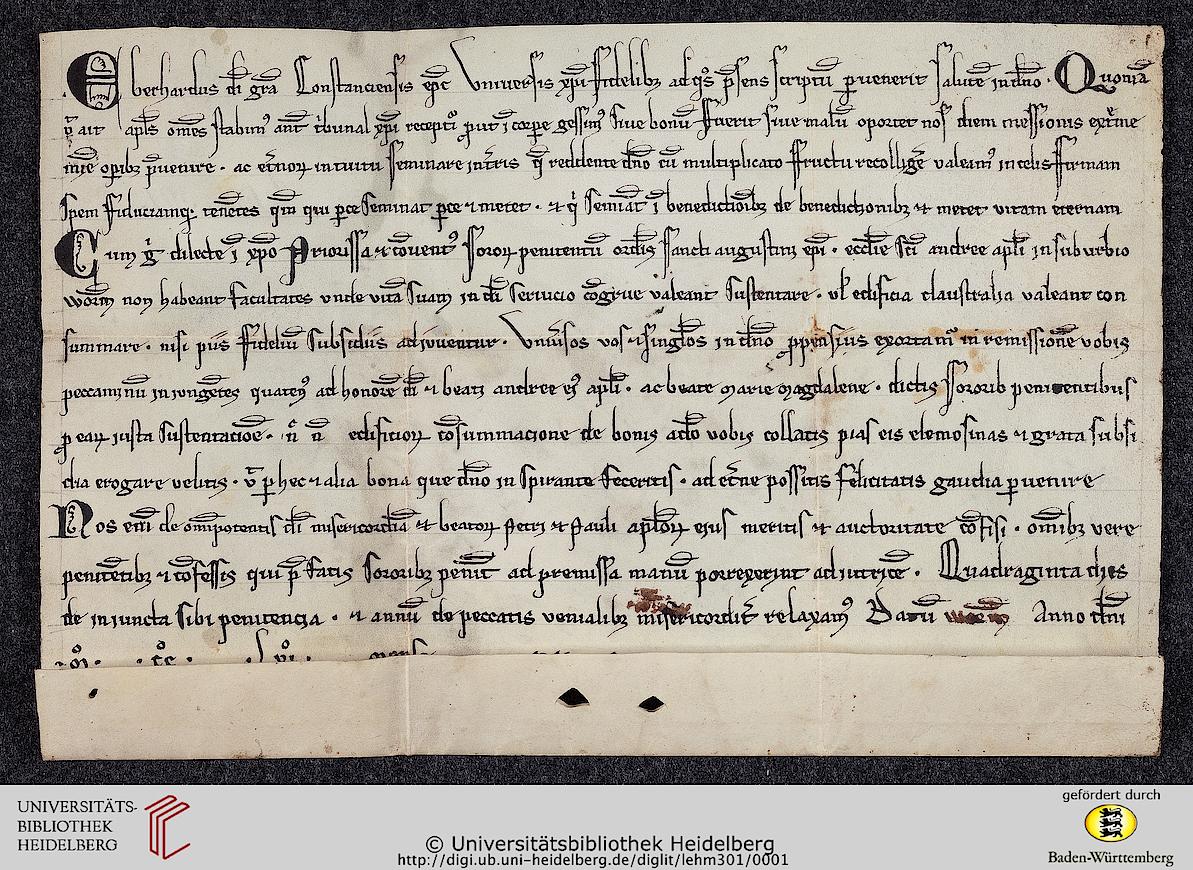 Eberhardus dī grā Constanciensis ep̄c Universis xp̄i fidelibꝫ ad qͦs p̄sens scriptū ꝑvenerit salutē in dn̄o. Quoniā
ut ait apl̄s om̄es stabimꝰ an̄t t̄bunal xp̄i recepti ꝓut ī corꝑe gessimꝰ sive bonū fuerit sive malū oportet nos diem messionis ext̄me
mīe opibꝫ p̄venire. ac et̄noꝝ intuitu seminare in t̄ris qͥ reddente dn̄o cū multiplicato fructu recolliḡe valeamꝰ in celis firmam
spem fiduciamqꝫ tenētes qm̄ qui ꝑce seminat ꝑce ⁊ metet. ⁊ qͥ semīat ī benedictiōibꝫ de benedictionibꝫ ⁊ metet vitam eternam
Cum gͥ dilecte ī xp̄o Priorissa ⁊ cōventꝰ soroꝝ penitentū ordīs sancti augustini ep̄i. eccl̄ie sc̄i andree apl̄i in suburbio
worm̄ non habeant facultates unde vitā suam in dī servicio cōgrue valeant sustentare. vl̓ edificia claustralia valeant con
summare. nisi piis fideliū subsidiis adjuventur. Univ̄sos vos ⁊ singl̄os in dn̄o ꝓpensius exortamͬ in remissionē vobis
peccaminū injungētes quatenꝰ ad honorē dī ⁊ beati andree eiꝰ apl̄i. ac beate marie magdalene. dictis sororib penitentibus
ꝓ eaꝝ iusta sustentacioē. edificioꝝ cōsummacione de bonis a dō vobis collatis pias eis elemosinas ⁊ grata subsi
dia erogare velitis. ut ꝑ hec ⁊ alia bona que dn̄o inspirante feceritis. ad et̄ne possitis felicitatis gaudia ꝑvenire
Nos enī de om̄ipotentis dī misericordia ⁊ beatoꝝ Petri ⁊ Pauli apl̄oꝝ ejus meritis ⁊ auctoritate cōfisi. om̄ibꝫ vere
penitētibꝫ ⁊ cōfessis qui p̄fatis sororibꝫ penit̄ ad premissa manū porrexerint adjutricē. Quadraginta dies
de injuncta sibi penitencia. ⁊ annū de peccatis venialibꝫ misericordit̄ relaxamꝰ Datū worm̄ Anno dn̄i
UNIVERSITÄTS-
BIBLIOTHEK
HEIDELBERG
© Universitätsbibliothek Heidelberg
http://digi.ub.uni-heidelberg.de/diglit/lehm301/0001
gefördert durch
Baden-Württemberg